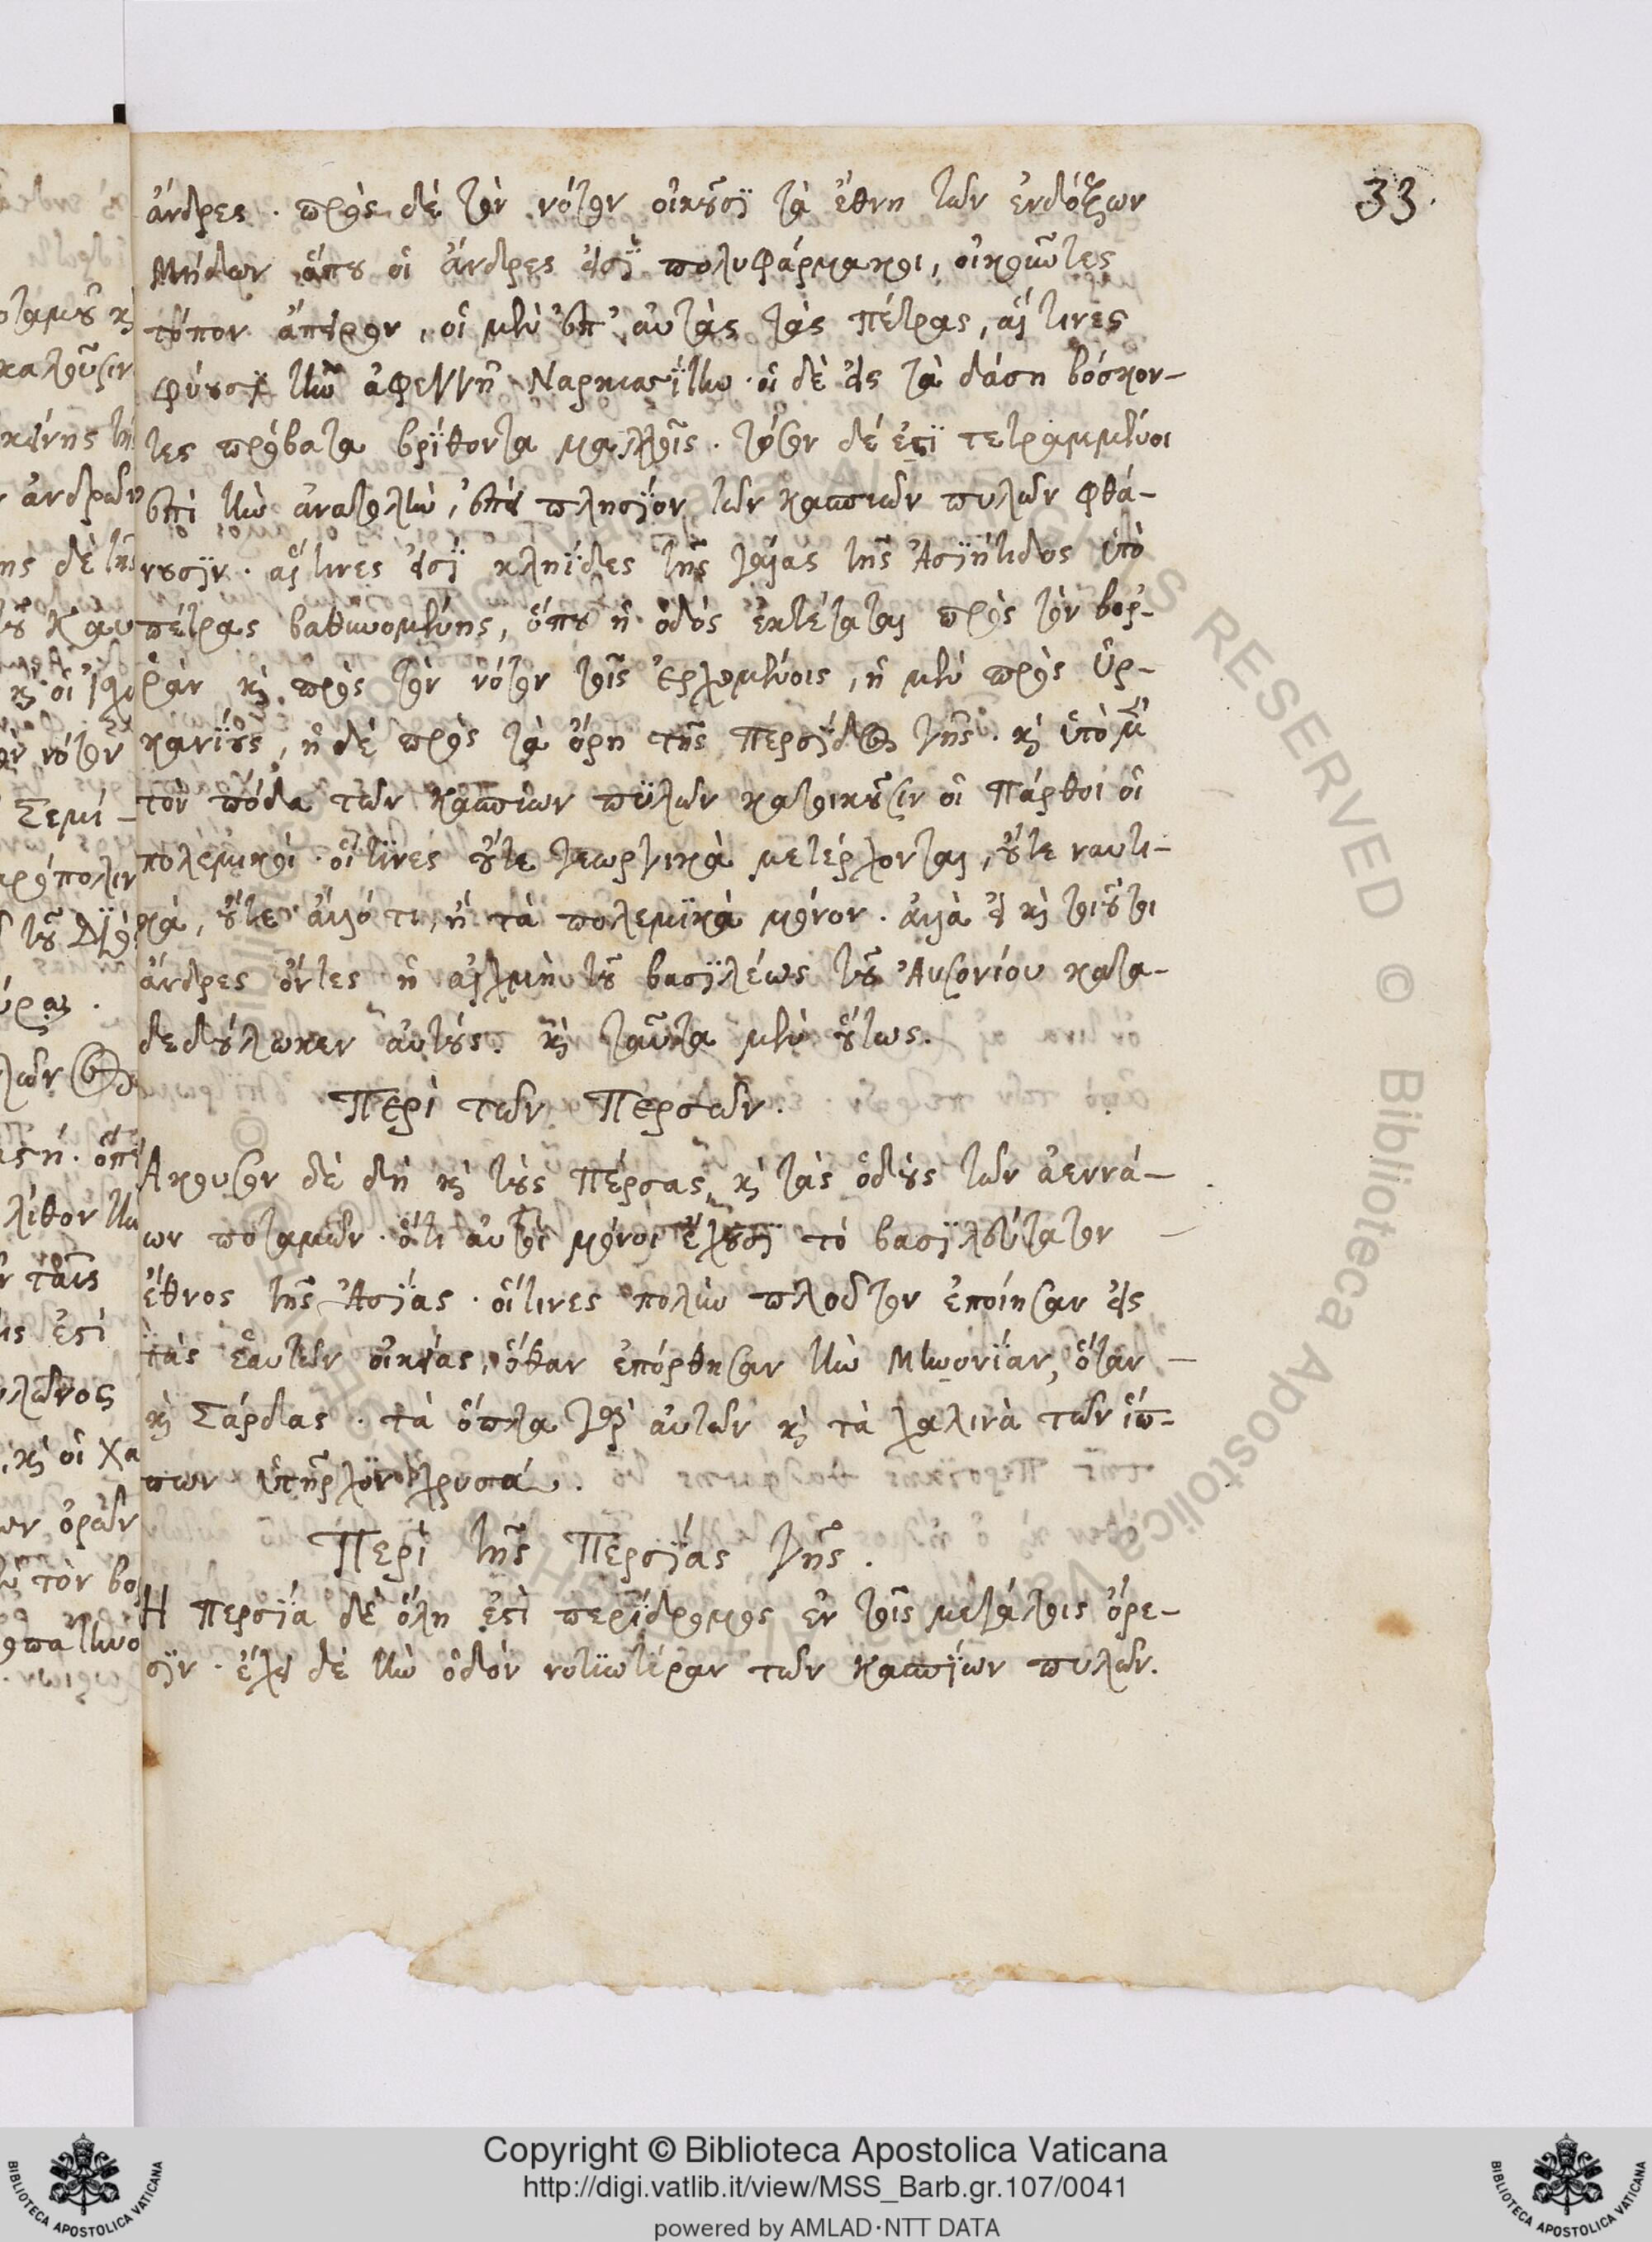 33.
άνδρες . πρὸς δὲ τὸν νότον οἰκοῦσϊ τὰ ἔθνη τῶν ἐνδόξων
Μήδων ὅπου οἱ ἄνδρες εἰσϊ πολυφάρμακοι, οἰκοῦντες
τόπον ἄπειρον, οἱ μὲν ἐπ' αὐτὰς τὰς πέτρας, αἵ τινες
φύουσϊ τὴν ἀφεγγῆ Ναρκισΐτην . οἱ δὲ εἰς τὰ δάση βόσκον-
τες πρόβατα βρΐθοντα μαλλοῖς . τόσον δέ ἐισϊ τετραμμένοι
ἐπὶ τὴν ἀνατολὴν, ἐπεὶ πλησϊον τῶν κασπιῶν πυλῶν φθά-
νουσϊν . αἵ τινες εἰσϊ κληϊδες τῆς γαίας τῆς Ἀσϊήτιδος ὑπὸ
πέτρας βαθυνομένης, ὅπου ἡ ὁδός ἐκτέταται πρὸς τὸν βορ-
ρὰν καὶ πρὸς τὸν νότον τοῖς ἐρχομένοις, ἡ μὲν πρὸς Ὑρ-
κανΐους, ἡ δὲ πρὸς τὰ ὄρη τῆς Περσΐδος γῆς . καὶ ὑπὸ μὲν
τὸν πόδα τῶν κασπίων πϋλῶν κατοικοῦσιν οἱ Πάρθοι οἱ
πολεμικοὶ . οἵ τϊνες οὔτε γεωργικὰ μετέρχονται, οὔτε ναυτι-
κὰ, οὔτε ἄλλό τι, ἢ τὰ πολεμϊκὰ μόνον . ἀλλὰ εἰ καὶ τοιοῦτοι
άνδρες ὄντες ἡ αἰχμὴ τοῦ βασϊλέως τοῦ Αὐσονίου κατα-
δεδούλωκεν αὐτούς. καὶ ταῦτα μὲν οὕτως.
Περὶ τῶν Περσῶν.
Ακουσον δὲ δὴ καὶ τοὺς Πέρσας, καὶ τὰς ὁδοὺς τῶν ἀεννά-
ων ποταμῶν . ὅτι αὐτοὶ μόνοι ἔχουσϊ τό βασϊλεύτατον
ἔθνος τῆς Ἀσΐας . οἵτινες πολὺν πλοῦτον ἐποίησαν εἰς
τὰς ἑαυτῶν οἰκείας, ὅταν ἐπόρθησαν τὴν Μηονΐαν, ὅταν
καὶ Σάρδας . τὰ ὅπλα γὰρ αὐτῶν καὶ τὰ χαλινὰ τῶν ἵπ-
πων ὑπῆρχον χρυσά.
Περὶ τῆς Περσΐας γῆς .
Η Περσΐα δὲ ὅλη ἐστὶ περΐδρομος ἐν τοῖς μεγάλοις ὄρε-
σϊν . ἔχει δὲ τὴν ὁδὸν νοτϊωτέραν τῶν κασπΐων πυλῶν.
Copyright © Biblioteca Apostolica Vaticana
http://digi.vatlib.it/view/MSS_Barb.gr.107/0041
powered by AMLAD·NTT DATA